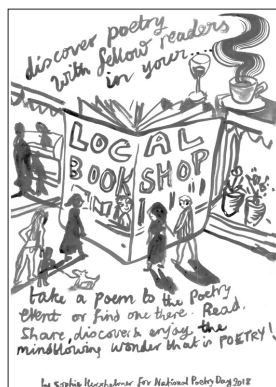 discover poetry
with fellow readers
in your...
LOCAL
BOOK SHOP
take a poem to the Poetry
event or find one there. Read,
Share, discover & enjoy the
mindblowing wonder that is POETRY!
by Sophie Herxheimer for National Poetry Day 2018